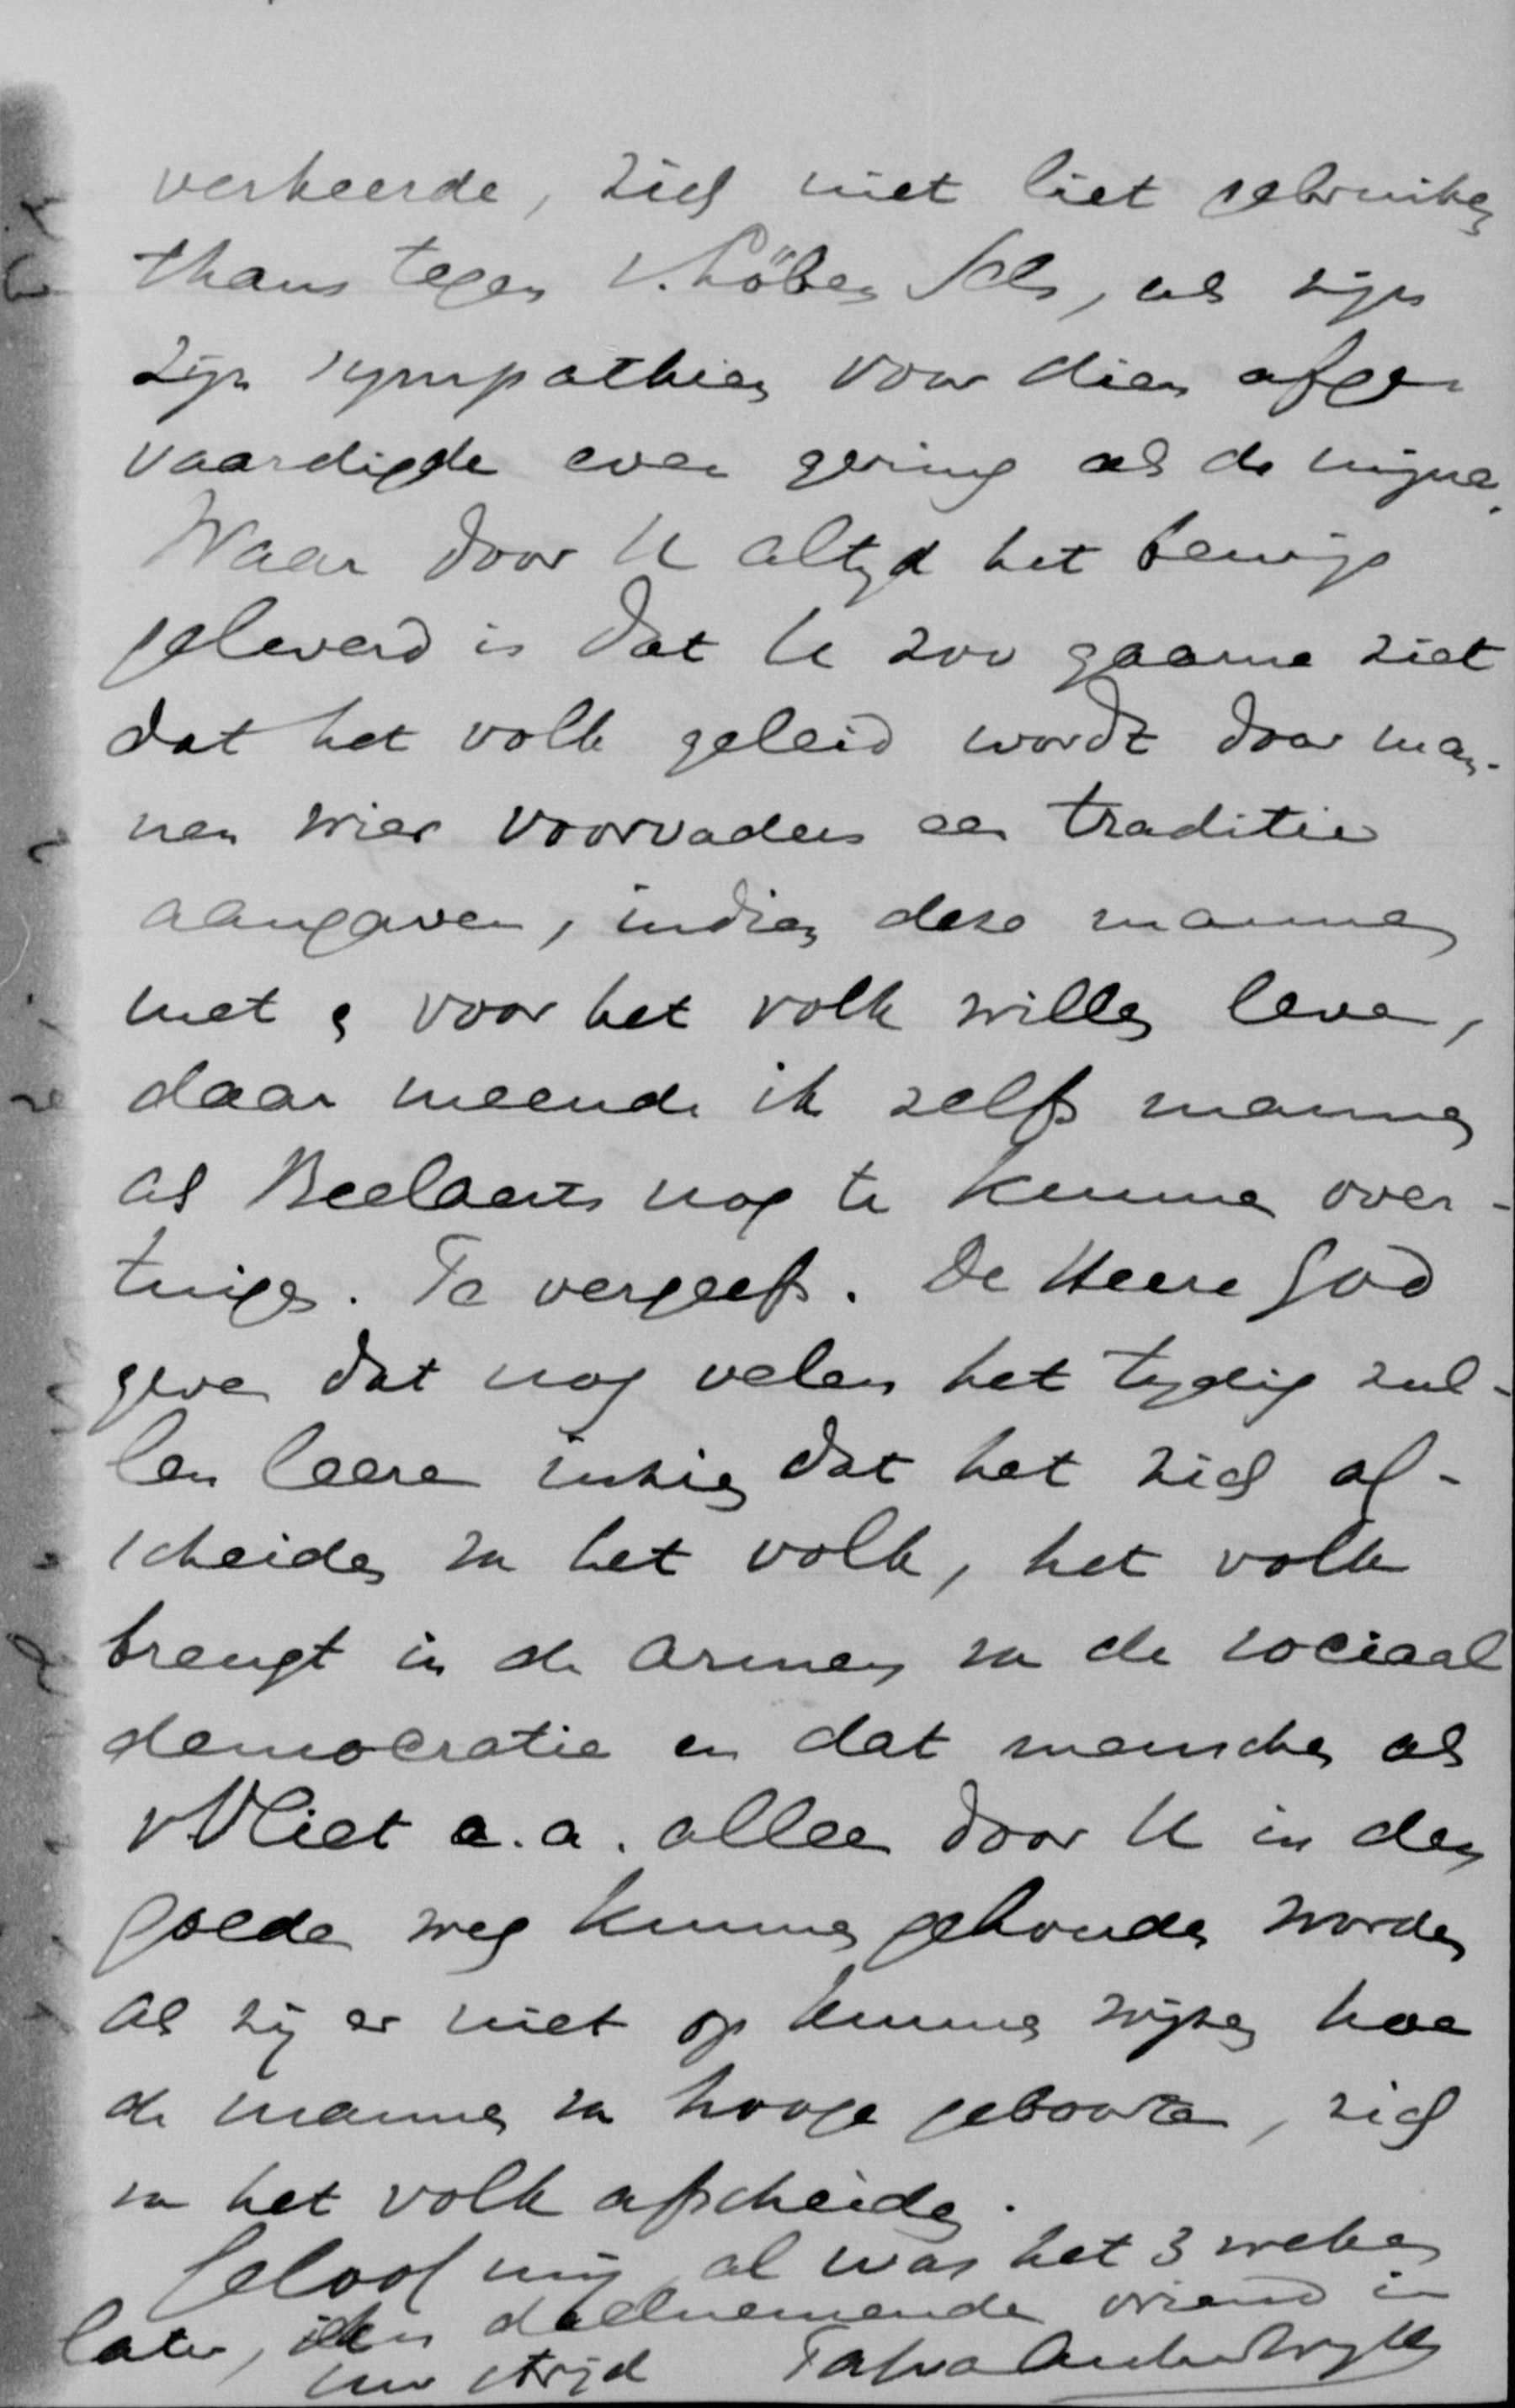 verkeerde, zich niet liet gebruiken
thans tegen v. Löben Sels, al zijn
zijn sympathien voor dien afge-
vaardigde even gering als de mijne.
Waar door U altyd het bewijs
geleverd is dat U zoo gaarne ziet
dat het volk geleid wordt door man-
nen wier voorvaders een traditie
aangaven, indien deze mannen
met en voor het volk willen leven,
daar meende ik zelfs mannen
als Beelaerts nog te kunnen over-
tuigen. Te vergeefs. De Heere God
geve dat nog velen het tydig zul-
len leeren inzien dat het zich af-
scheiden van het volk, het volk
brengt in de armen van de sociaal
democratie en dat menschen als
v Vliet e.a. alleen door U in den
goede weg kunnen gehouden worden
als zij er niet op kunnen wijzen hoe
de mannen van hooge geboorte, zich
van het volk afscheiden.
Geloof mij, al was het 3 weken
later, deelnemende vriend in
uw strijd